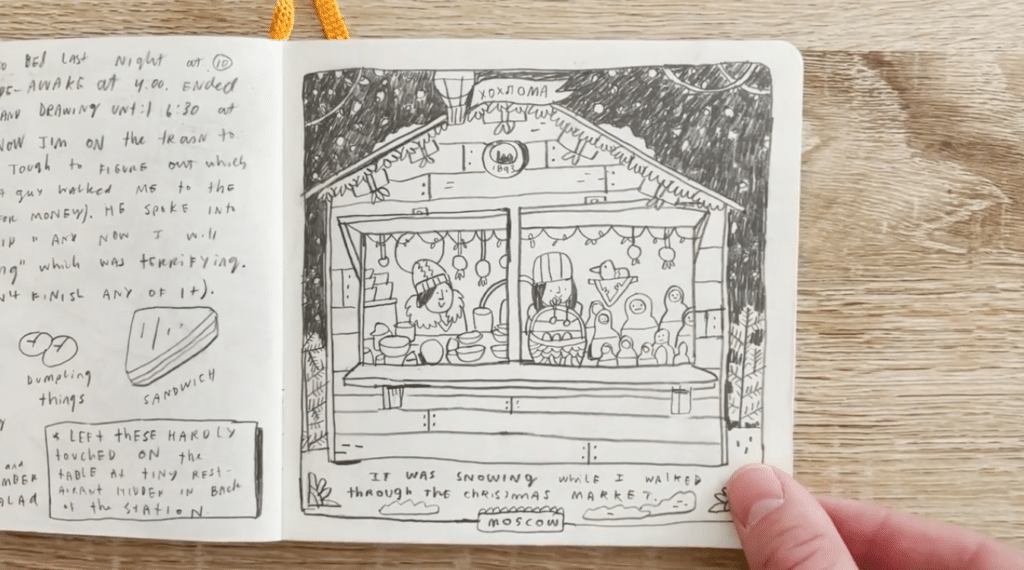 BED LAST NIGHT at 10
AWAKE at 4.00. ENDED
AND DRAWING UNtil 6:30 at
NOW I'M ON the tRAIN to
TOUGH to FIGURE OUt which
A guy walked ME to the
FOR MONEY). HE SPOKE INto
" ANY NOW I will
" which was tERRIFYING.
FINISH ANY OF It).
DUMPLING
things
SANDWICH
* LEFT tHESE HARDLY
touched ON the
tABLE At tINY REST-
AURANT HIDDEN IN BACK
OF the StAtION
AND
ХОХЛОМА
1893
IT WAS SNOWING WHILE I WALKED
tHROUGH tHE CHRISTMAS MARKET.
MOSCOW